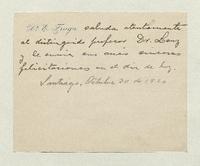 saluda atentamente
al distinguido profesor Dr. Lenz
y le envía sus más sinceras
felicitaciones en el día de hoy.
Santiago, Octubre de 19